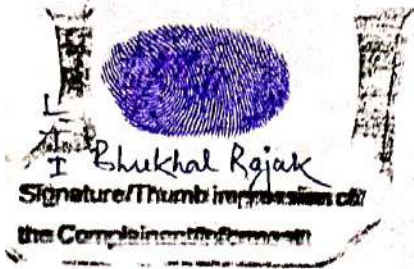 LTI
Bhukhal Rajak
Signature/Thumb impression of/
the Complainant/Informant